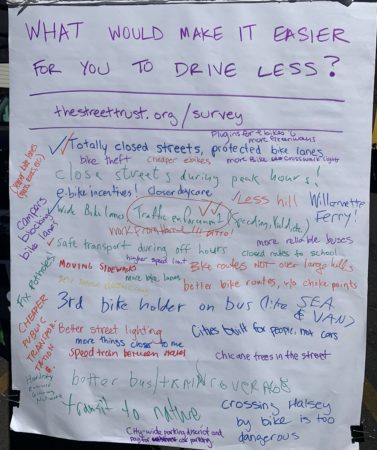 WHAT WOULD MAKE IT EASIER
FOR YOU TO DRIVE LESS?
thestreettrust.org/survey
Plugins for e bikes
more greenways
Totally closed streets, protected bike lanes
bike theft
cheaper ebikes
more Bike crosswalk light
close streets during peak hours!
e-bike incentives!
closer daycare
Less hill
Willamette
Ferry!
Campers
blocking
bike lanes
Wide Bike lanes
Traffic enforcement
(speeding, Valid, etc)
Work from home!!! DITTO!
more reliable buses
Safe transport during off hours
closed routes to school
higher speed limit
FIX POTHOLES
MOVING SIDEWALKS
Bike routes NOT over large hills
more bike lanes
better bike routes, w/o choke points
CHEAPER
PUBLIC
TRANSPOR
TATION
3rd bike holder on bus (like SEA
& VAN)
Better street lighting
Cities built for people, not cars
more things closer to me
Speed train between
chicane trees in the street
better bus/TRAIN COVERAGE
transit to nature
crossing Halsey
by bike is too
dangerous
City-wide parking district and
pay for car parking